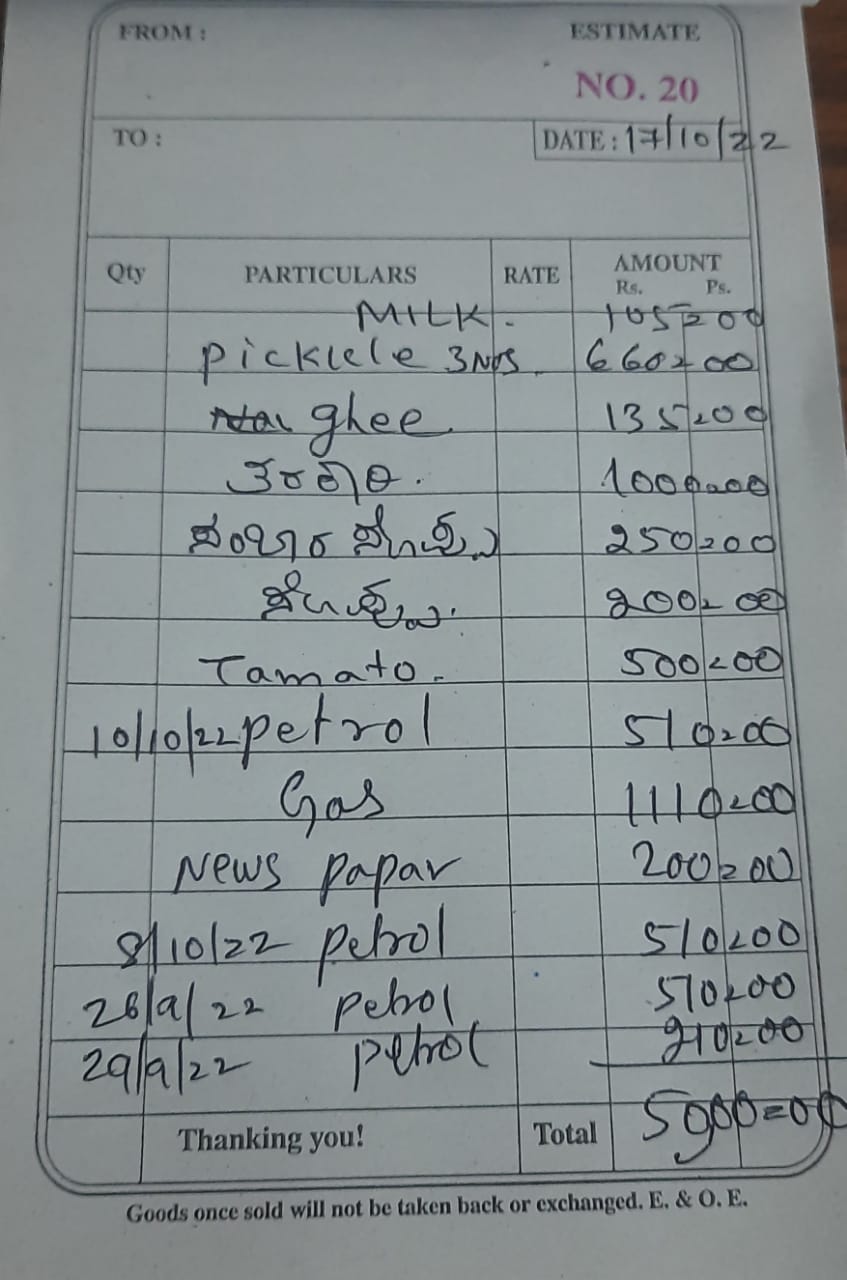 FROM : ESTIMATE
NO. 20
TO : DATE : 17/10/22
Qty PARTICULARS RATE AMOUNT
Rs. Ps.
MILK. 105=00
picklele 3Nos. 660=00
ghee 135=00
1000=00
250=00
200=00
Tamato. 500=00
10/10/22 petrol 510=00
Gas 1110=00
News papar 200=00
8/10/22 petrol 510=00
26/9/22 petrol 510=00
29/9/22 petrol 210=00
Thanking you! Total 5900=00
Goods once sold will not be taken back or exchanged. E. & O. E.